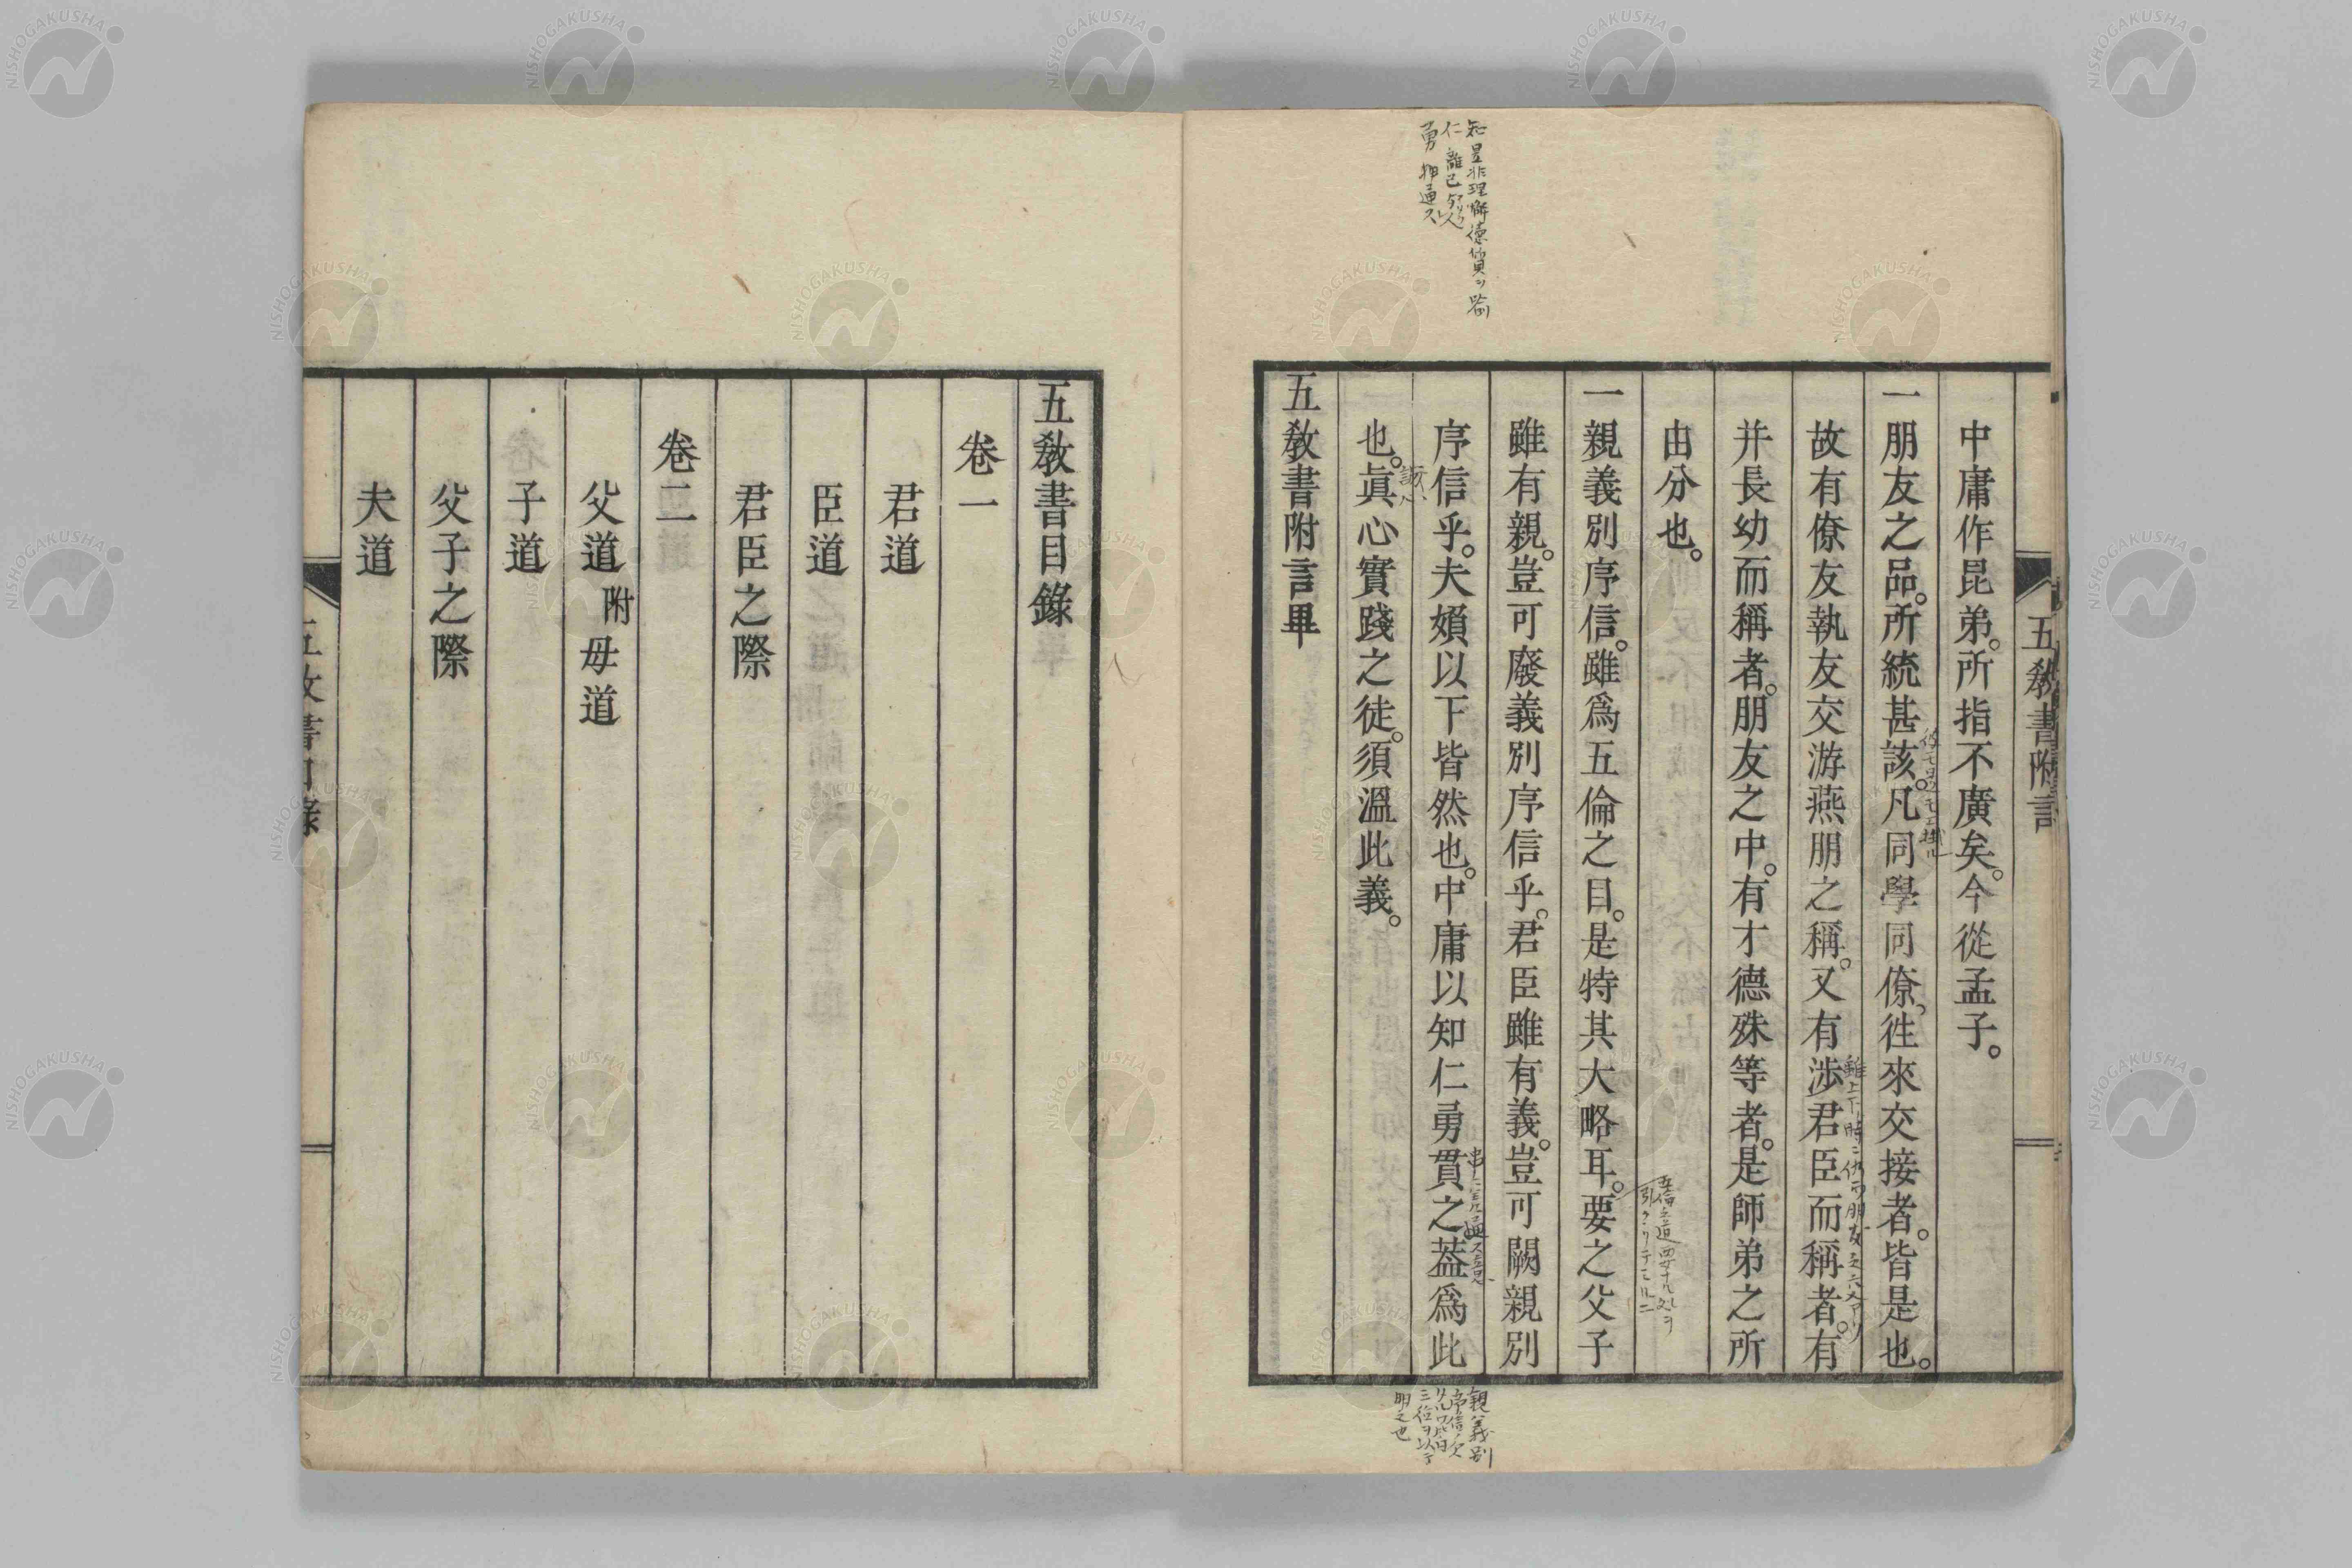 五教書附言
中庸作昆弟。所指不廣矣。今從孟子。
一朋友之品。所統甚該。凡同學同僚。徃來交接者。皆是也。
故有僚友執友交游燕朋之稱。又有涉君臣而稱者。有
并長幼而稱者。朋友之中。有才德殊等者。是師弟之所
由分也。
一親義別序信。雖爲五倫之目。是特其大略耳。要之父子
雖有親。豈可廢義別序信乎。君臣雖有義。豈可闕親別
序信乎。夫婦以下皆然也。中庸以知仁勇貫之。葢爲此
也。眞心實踐之徒。須溫此義。
五教書附言畢
知 是非理
仁
勇
親義別
序信
三德ヲ以テ
明之也
五教書目錄
卷一
君道
臣道
君臣之際
卷二
父道 附母道
子道
父子之際
夫道
五教書目錄
NISHOGAKUSHA